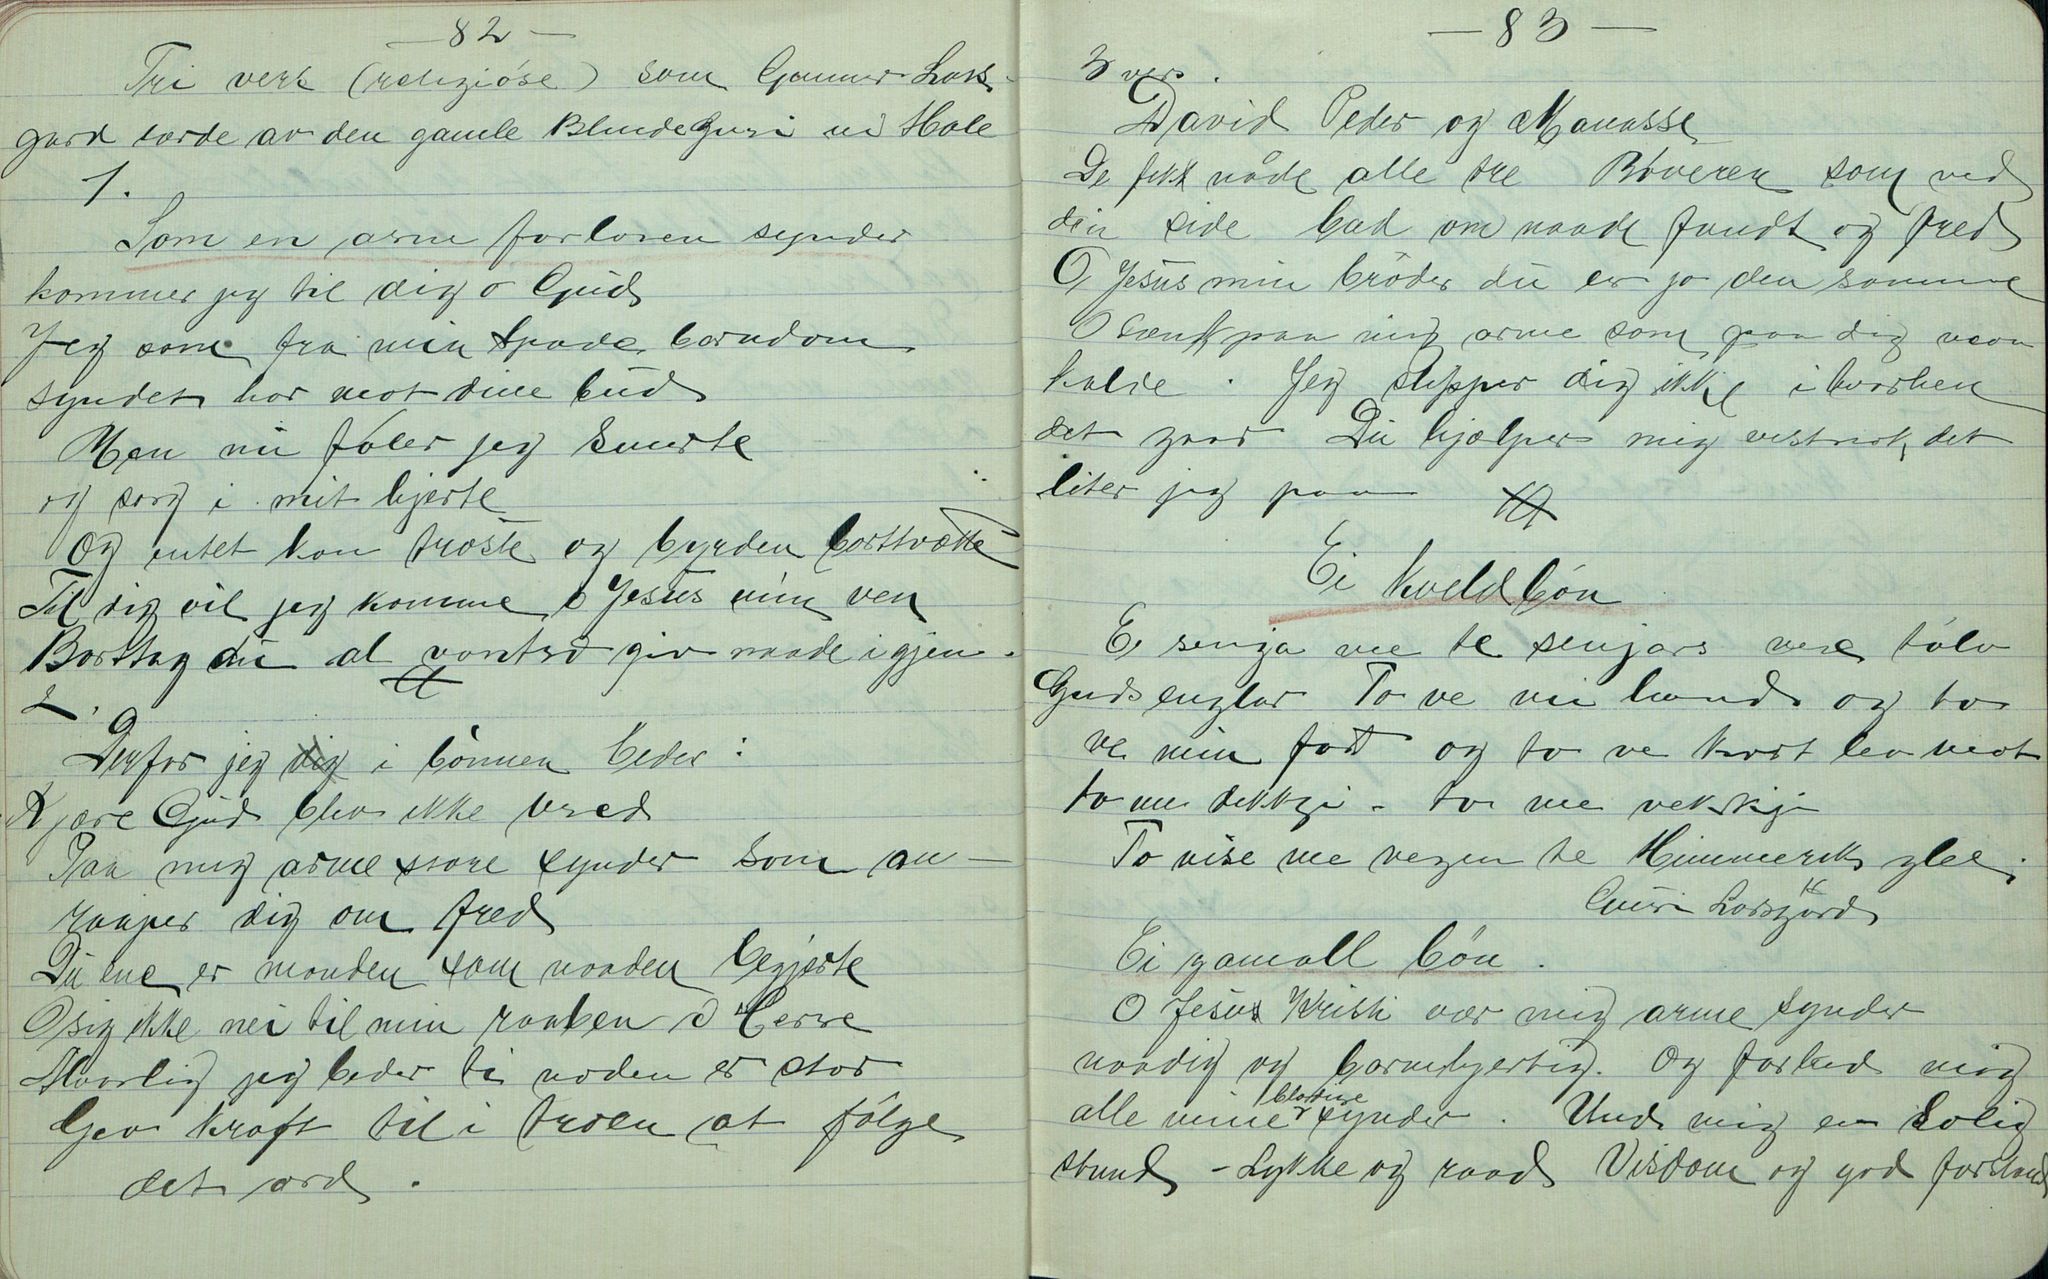 — 82 —
Tri vers (religiöse) som Gunner Lars-
gard lærde av den gamle BlindeGuri ni Hole
1.
Som en arm forloren synder
kommer jeg til dig o Gud
Jeg som fra min spæde barndom
syndet har mot dine bud
Men nu føler jeg smerte
og sorg i mit hjerte
Og intet kan trøste og byrden borttvætte
Til dig vil jeg komme, o Jesus min ven
Borttag du al vantro giv naade igjen.
2.
Derfor jeg dig i bønnen beder:
Kjære Gud bliv ikke vred
Paa mig arme store synder som an-
raaper dig om fred
Du ene er manden som naaden begjerte
O sig ikke nei til min raaben o Herre
Alvorlig jeg beder ti naden er stor
Gev kraft til i troen at følge
det ord.
— 83 —
3 vers.
David Peder og Manasse
De fekk nåde alle tre Røveren som ved
din side bad om naade fandt og fred
O, Jesus min bröder du er jo den samme
O tænk paa mig arme som paa dig maa
kalle. Jeg slipper dig ikke i hvorhen
det gaar Du hjælper mig visdnok, det
liter jeg paa
Ei kveldbön
E senga me te senjars mee tólv
Guds englar To ve mi hand og to
ve min fot og to ve kvart leamot
to me dekkji - to me vekkji
To vise me vegen te Himmeriks glee.
Guri Larsgård
Ei gamall bön.
O Jesus Kristi vær mig arme synder
naadig og barmhjertig. Og forlad mig
alle mine blodige synder. Und mig en salig
stund - Lykke og raad Visdom og god forstand